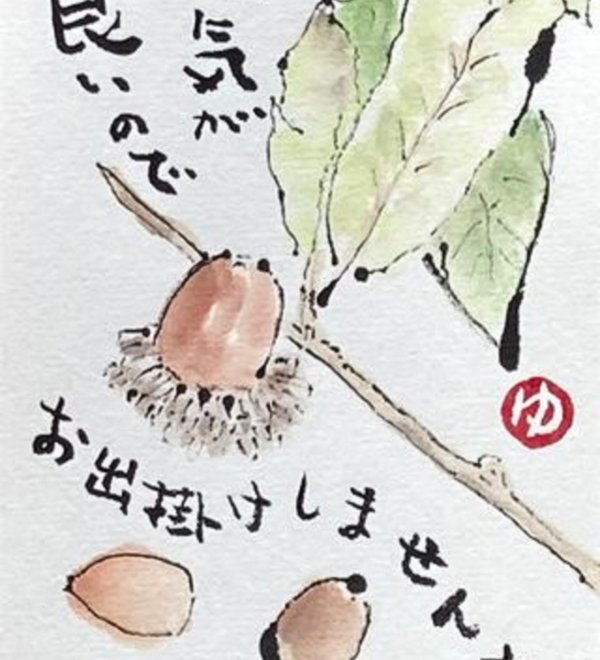 気が
良いので
お出掛けしません
ゆ